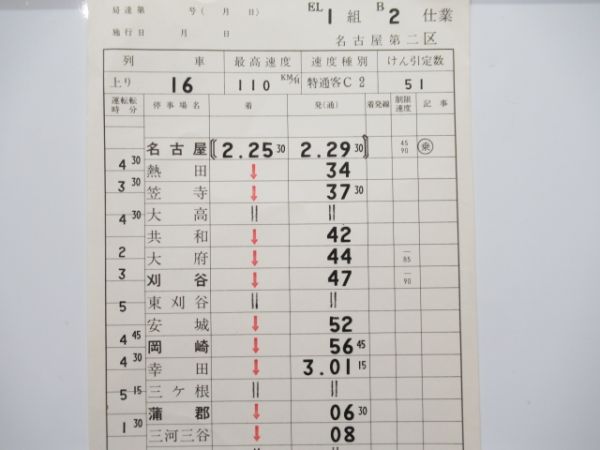 局達第 号( 月 日) EL1組 B2仕業
施行日 月 日 名古屋第二区
列 車 最高速度 速度種別 けん引定数
上り 16 110 KM/H 特通客C2 51
運転時分 停車場名 着 発(通) 着発線 制限速度 記事
名古屋 〔2.25 30 2.29 30〕 45 90 乗
4 30
熱田 ↓ 34
3 30
笠寺 ↓ 37 30
大高 || ||
4 30
共和 ↓ 42
2
大府 ↓ 44 — 85
3
刈谷 ↓ 47 — 90
東刈谷 || ||
5
安城 ↓ 52
4 45
岡崎 ↓ 56 45
4 30
幸田 ↓ 3.01 15
三ケ根 || ||
5 15
蒲郡 ↓ 06 30
1 30
三河三谷 ↓ 08